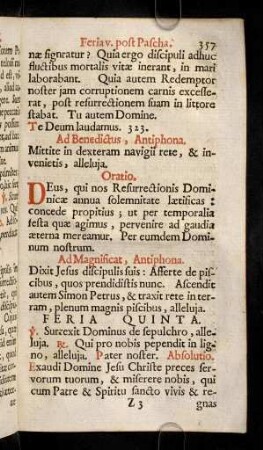 Feria v. post Pascha. 357
næ signatur? Quia ergo discipuli adhuc
fluctibus mortalis vitæ inerant, in mari
laborabant. Quia autem Redemptor
noster jam corruptionem carnis excesse-
rat, post resurrectionem suam in littore
stabat. Tu autem Domine.
Te Deum laudamus. 323.
Ad Benedictus, Antiphona.
Mittite in dexteram navigii rete, & in-
venietis, alleluja.
Oratio.
DEus, qui nos Resurrectionis Domi-
nicæ annua solemnitate lætificas:
concede propitius; ut per temporalia
festa quæ agimus, pervenire ad gaudia
æterna mereamur. Per eumdem Domi-
num nostrum.
Ad Magnificat, Antiphona.
Dixit Jesus discipulis suis: Afferte de pis-
cibus, quos prendidistis nunc. Ascendit
autem Simon Petrus, & traxit rete in ter-
ram, plenum magnis piscibus, alleluja.
FERIA QUINTA.
℣. Surrexit Dominus de sepulchro, alle-
luja. ℟. Qui pro nobis pependit in lig-
no, alleluja. Pater noster. Absolutio.
Exaudi Domine Jesu Christe preces ser-
vorum tuorum, & miserere nobis, qui
cum Patre & Spiritu sancto vivis & re-
Z 3 gnas